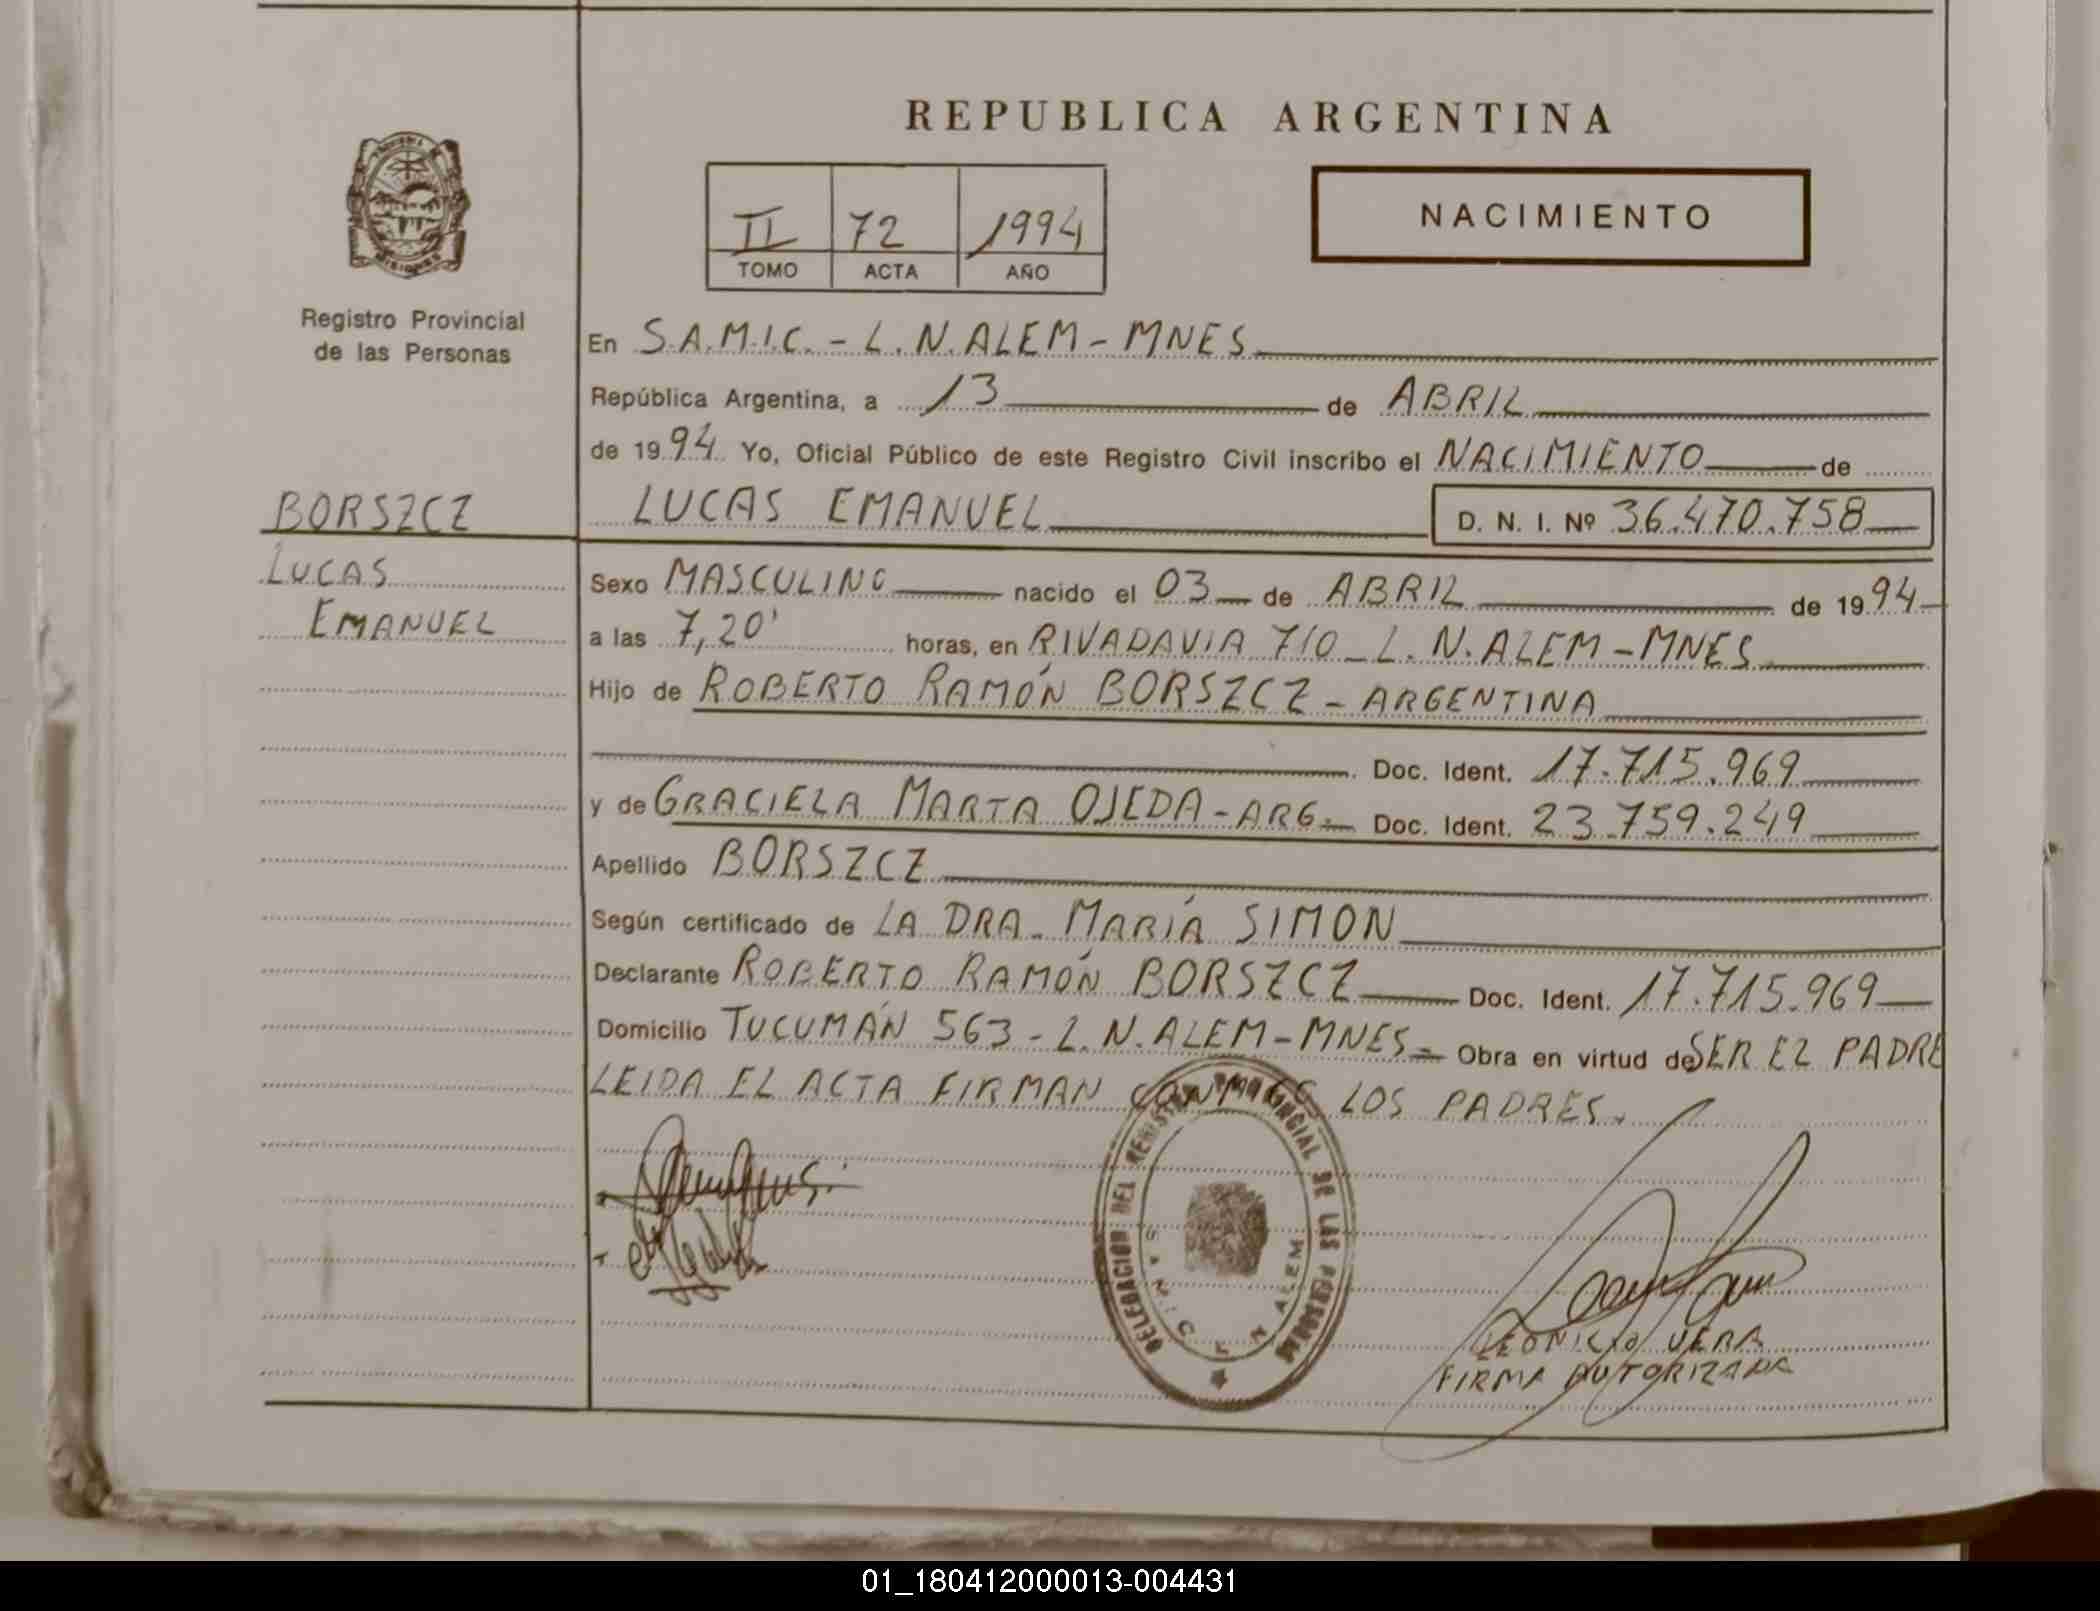 REPUBLICA ARGENTINA
II 72 1994
TOMO ACTA AÑO
NACIMIENTO
MISIONES
Registro Provincial
de las Personas
En S.A.M.I.C. - L. N. ALEM - MNES
República Argentina, a 13 de ABRIL
de 1994 Yo, Oficial Público de este Registro Civil inscribo el NACIMIENTO de
LUCAS EMANUEL D. N. I. Nº 36.470.758
BORSZCZ
LUCAS
EMANUEL
Sexo MASCULINO nacido el 03 de ABRIL de 1994
a las 7,20' horas, en RIVADAVIA 710 - L. N. ALEM - MNES
Hijo de ROBERTO RAMÓN BORSZCZ - ARGENTINA
Doc. Ident. 17.715.969
y de GRACIELA MARTA OJEDA - ARG. Doc. Ident. 23.759.249
Apellido BORSZCZ
Según certificado de LA DRA. MARÍA SIMON
Declarante ROBERTO RAMÓN BORSZCZ Doc. Ident. 17.715.969
Domicilio TUCUMÁN 563 - L. N. ALEM - MNES - Obra en virtud de SER EL PADRE
LEIDA EL ACTA FIRMAN CONMIGO LOS PADRES.
DELEGACION DEL REGISTRO PROVINCIAL DE LAS PERSONAS
S.A.M.I.C. L. N. ALEM
LEONICIO VERA
FIRMA AUTORIZADA
01_180412000013-004431